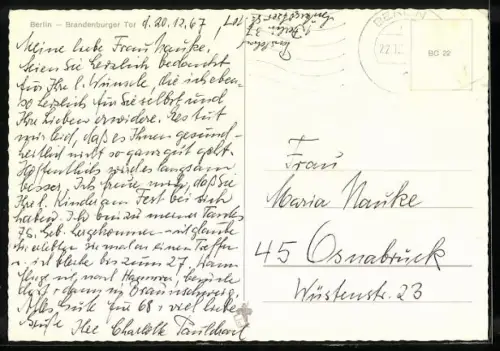 Berlin – Brandenburger Tor
d. 20.12.67
Meine liebe Frau Nauke,
seien Sie herzlich bedankt
für Ihre l. Wünsche, die ich eben-
so herzlich für Sie selbst und
Ihre Lieben erwidere. Es tut
mir leid, daß es Ihnen gesund-
heitlich nicht so ganz gut geht.
Hoffentlich wird es langsam
besser. Ich freue mich, daß Sie
Ihre l. Kinder zum Fest bei sich
haben. Ich bin zu meiner Tante
75. Geb. hergekommen – ich glaube
Sie erlebten sie mal an einem Treffen
u. ich bleibe bis zum 27. Dann
fliege ich nach Hannover,
dort dann in Braunschweig.
Alles Gute für 68 u. viel liebe
Grüße Ihre Charlotte
BERLIN
22.12
BC 22
Frau
Maria Nauke
45 Osnabrück
Wüstenstr. 23